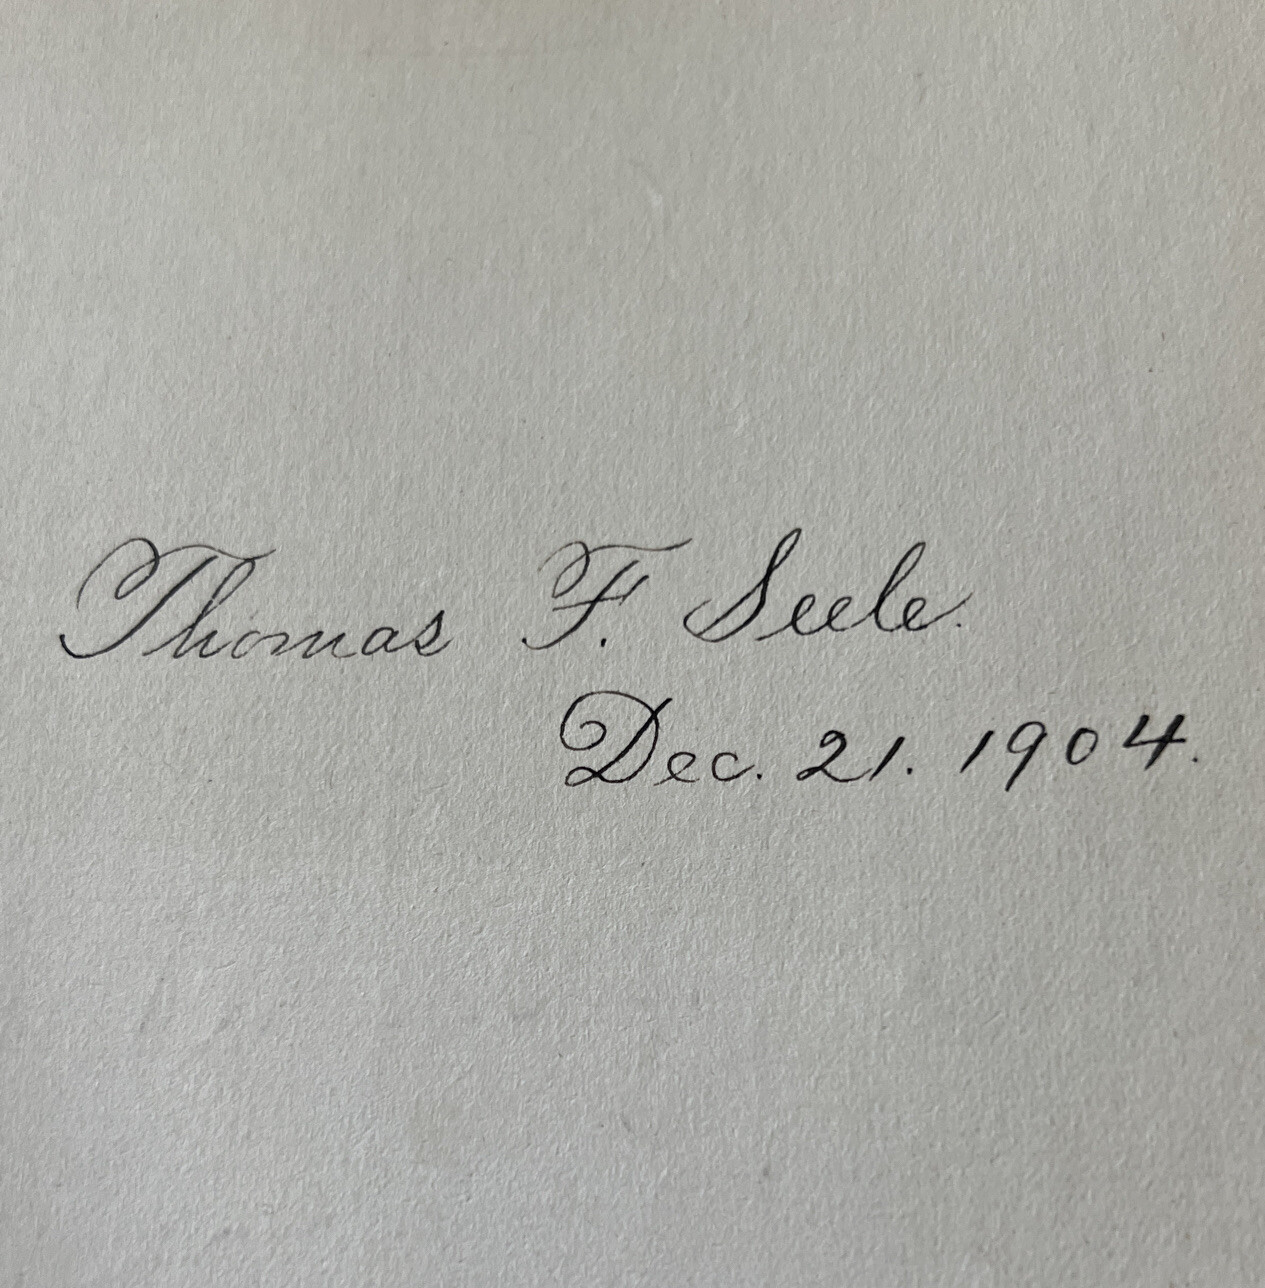 Thomas F. Seele.
Dec. 21. 1904.